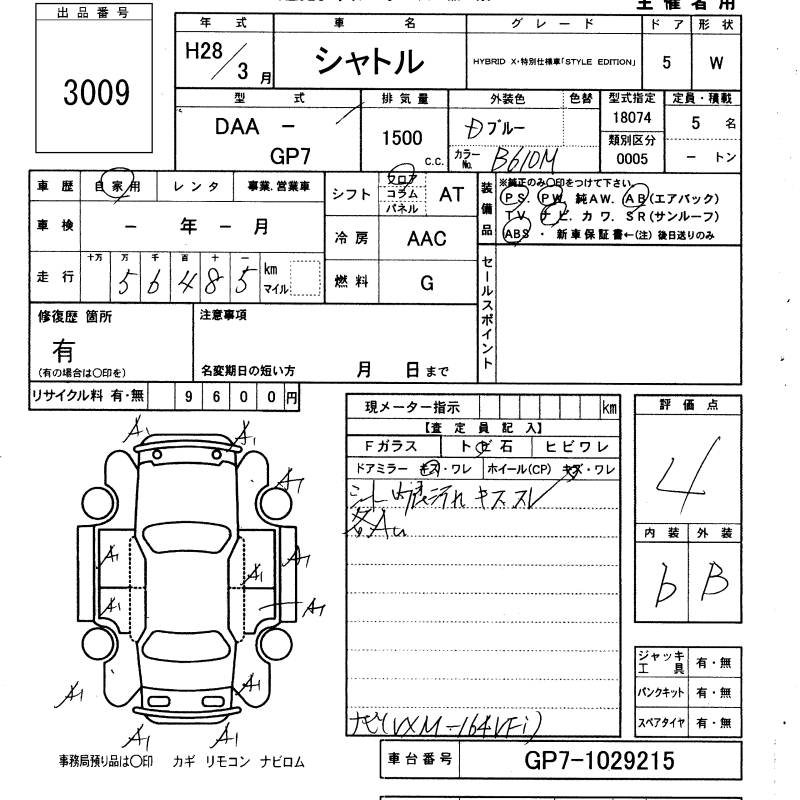 主催者用
出品番号
3009
年式 車名 グレード ドア 形状
H28/3月 シャトル HYBRID X・特別仕様車「STYLE EDITION」 5 W
型式 排気量 外装色 色替 型式指定 定員・積載
DAA － GP7 1500 c.c. Dブルー 18074 5名
カラーNo. B610M 類別区分 0005 － トン
車歴 自家用 レンタ 事業.営業車 シフト フロア コラム パネル AT
装備品 ※純正のみ〇印をつけて下さい
PS. PW. 純AW. AB(エアバック)
TV. ナビ. カワ. SR(サンルーフ)
ABS ・ 新車保証書←(注) 後日送りのみ
車検 － 年 － 月 冷房 AAC
走行 十万 万 千 百 十 一
56485 km マイル 燃料 G
セールスポイント
修復歴 箇所 注意事項
有
(有の場合は〇印を) 名変期日の短い方 月 日まで
リサイクル料 有・無 9600円
現メーター指示 km
【査定員記入】
Fガラス トビ石 ヒビワレ
ドアミラー キズ・ワレ ホイール(CP) キズ・ワレ
シート 内張汚れ キズスレ
各AU
ナビ(VXM-164VFi)
評価点
4
内装 外装
b B
ジャッキ工具 有・無
パンクキット 有・無
スペアタイヤ 有・無
A1 A1
A1
A1 A1
A1
A1 A1
A1 A1
A1 A1
事務局預り品は〇印 カギ リモコン ナビロム
車台番号 GP7-1029215